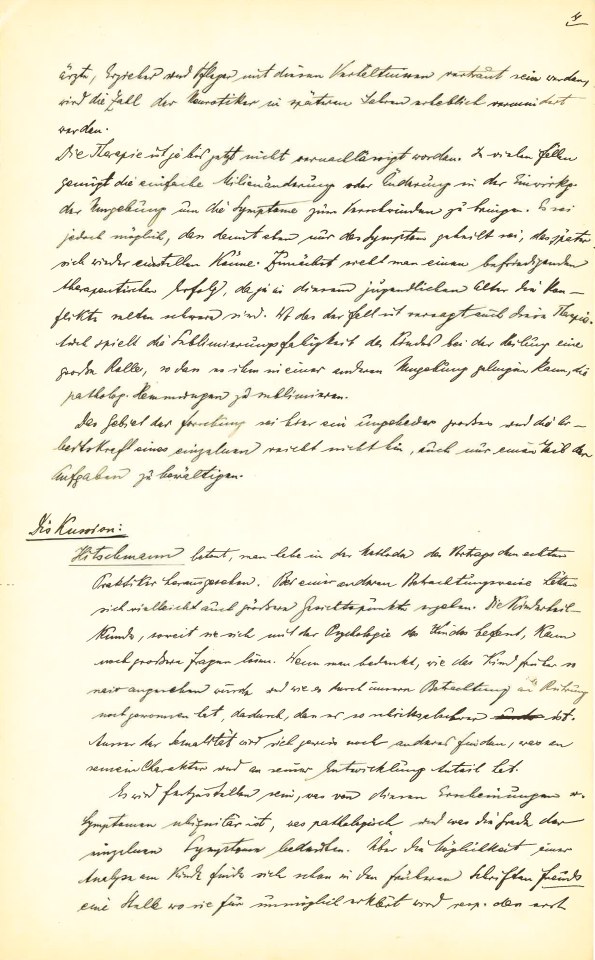 4
ärzte, Erzieher und Pfleger mit diesen Verhältnissen vertraut sein werden,
wird die Zahl der Neurotiker in späteren Jahren erheblich vermindert
werden.
Die Therapie ist ja bis jetzt nicht vernachlässigt worden. In vielen Fällen
genügt die einfache Milieuänderung oder Änderung in der Einwirkg.
der Umgebung um die Symptome zum Verschwinden zu bringen. Es sei
jedoch möglich, dass damit eben nur das Symptom geheilt sei, das später
sich wieder einstellen könne. Zunächst sieht man einen befriedigenden
therapeutischen Erfolg, da ja in diesem jugendlichen Alter die Kon-
flikte selten schwer sind. Wo das der Fall ist versagt auch diese Therapie.
Auch spielt die Sublimierungsfähigkeit des Kindes bei der Heilung eine
große Rolle, so dass es ihm in einer anderen Umgebung gelingen kann, die
patholog. Hemmungen zu sublimieren.
Das Gebiet der Forschung sei hier ein ungeheuer grosses und die Ar-
beitskraft eines einzelnen reicht nicht hin, auch nur einen Teil der
Aufgaben zu bewältigen.
Diskussion:
Hitschmann betont, man habe in der Methode des Vortrags den echten
Praktiker herausgesehen. Bei einer anderen Betrachtungsweise hätten
sich vielleicht auch größere Gesichtspunkte ergeben. Die Kinderheil-
kunde, soweit sie sich mit der Psychologie des Kindes befasst, kann
noch größere Fragen lösen. Wenn man bedenkt, wie das Kind früher so
naiv angesehen wurde und wie es durch unsere Betrachtung an Rührung
noch gewonnen hat, dadurch, dass er so ist.
Ausser der Sexualität wird sich gewiss noch anderes finden, was an
seinem Charakter und an seiner Entwicklung Anteil hat.
Es wird festzustellen sein, was von diesen Erscheinungen u.
Symptomen ist, was pathologisch und was die Grade der
einzelnen Symptome bedeuten. Über die Möglichkeit einer
Analyse am Kinde finde sich schon in den früheren Schriften Freuds
eine Stelle wo sie für unmöglich erklärt wird resp. dass erst